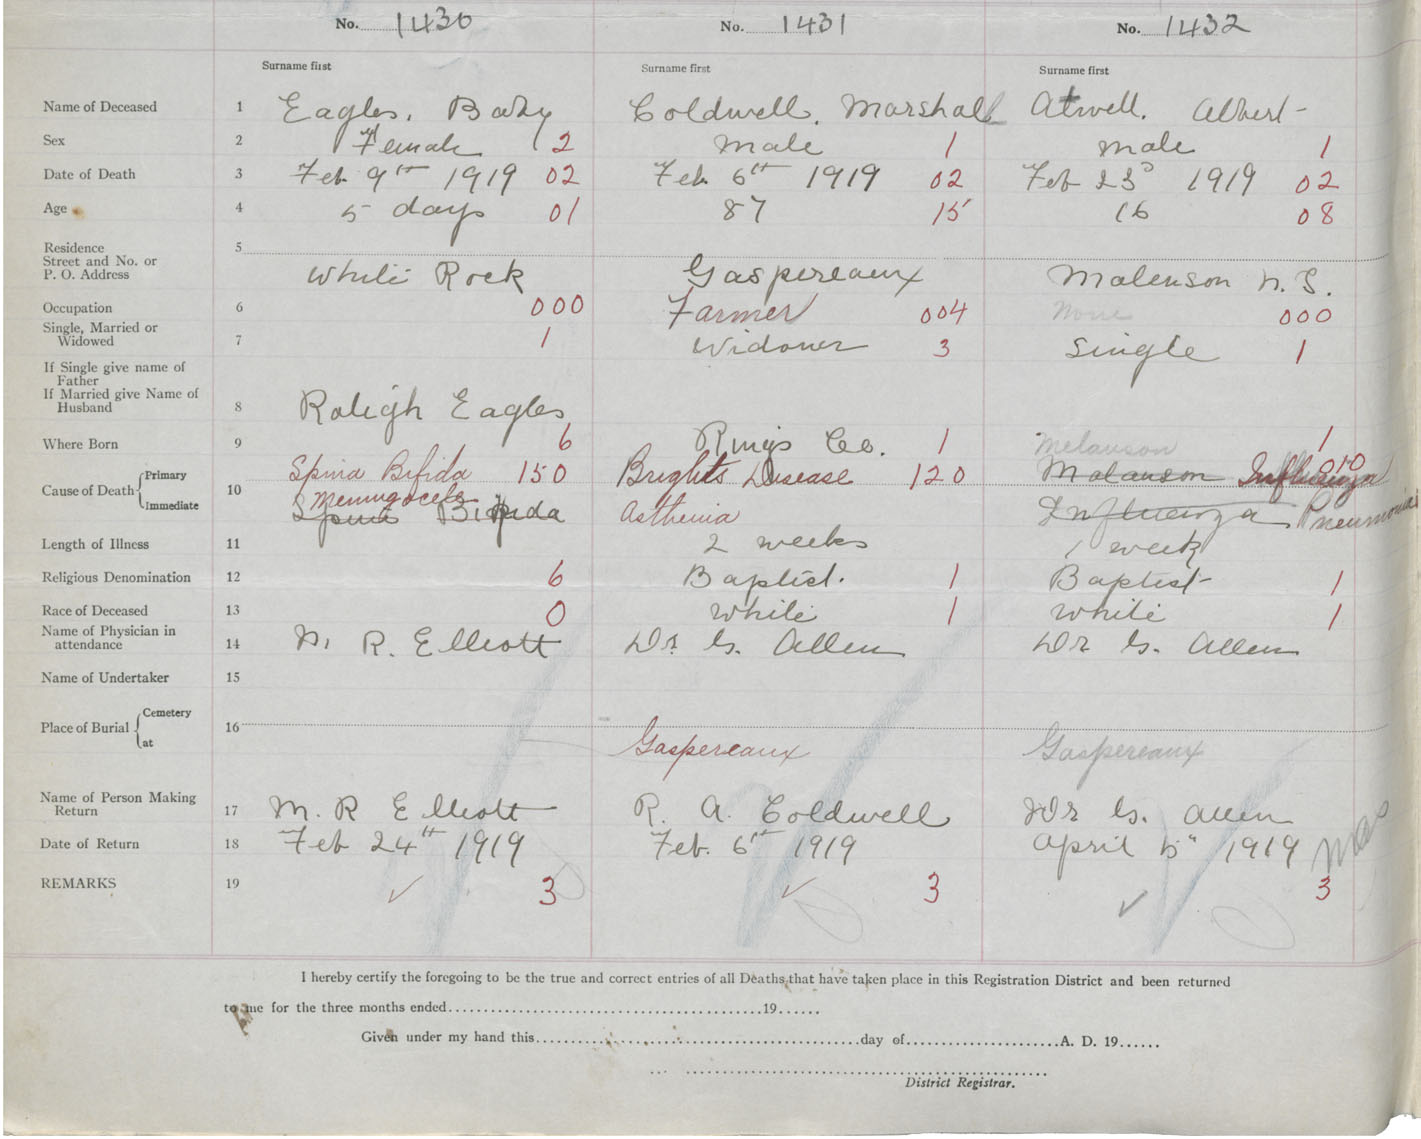 No. 1430 No. 1431 No. 1432
Surname first Surname first Surname first
Name of Deceased 1 Eagles, Baby Coldwell, Marshall Atwell, Albert
Sex 2 Female 2 Male 1 Male 1
Date of Death 3 Feb 9th 1919 02 Feb. 6th 1919 02 Feb 23d 1919 02
Age 4 5 days 01 87 15 16 08
Residence 5
Street and No. or
P. O. Address White Rock Gaspereaux Malenson N. S.
Occupation 6 000 Farmer 004 None 000
Single, Married or
Widowed 7 1 Widower 3 Single 1
If Single give name of
Father
If Married give Name of
Husband 8 Raleigh Eagles
Where Born 9 6 Kings Co. 1 Melanson 1
Cause of Death Primary Spina Bifida 150 Brights Disease 120 Malanson Influenza 010
10
Immediate Meningocele Spina Bifida Asthenia Influenza Pneumonia
Length of Illness 11 2 weeks 1 week
Religious Denomination 12 6 Baptist. 1 Baptist 1
Race of Deceased 13 0 White 1 White 1
Name of Physician in
attendance 14 M. R. Elliott Dr. G. Allen Dr G. Allen
Name of Undertaker 15
Place of Burial Cemetery 16
at Gaspereaux Gaspereaux
Name of Person Making
Return 17 M. R Elliott R. A. Coldwell Dr G. Allen
Date of Return 18 Feb 24th 1919 Feb. 6th 1919 April 5" 1919
REMARKS 19 ✓ 3 ✓ 3 ✓ 3
I hereby certify the foregoing to be the true and correct entries of all Deaths that have taken place in this Registration District and been returned
to me for the three months ended..........19......
Given under my hand this..........day of..........A. D. 19......
District Registrar.